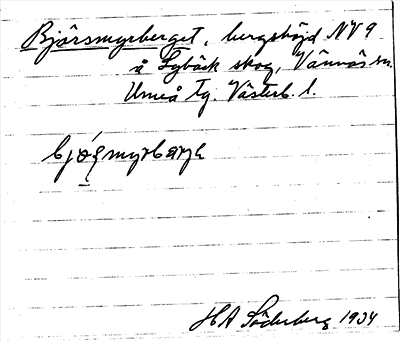 Bjärsmyrberget, bergshöjd NV 9
å Sybäck skog, Vännäs sn.
Umeå tg. Västerb. l.
HA Söderberg 1934